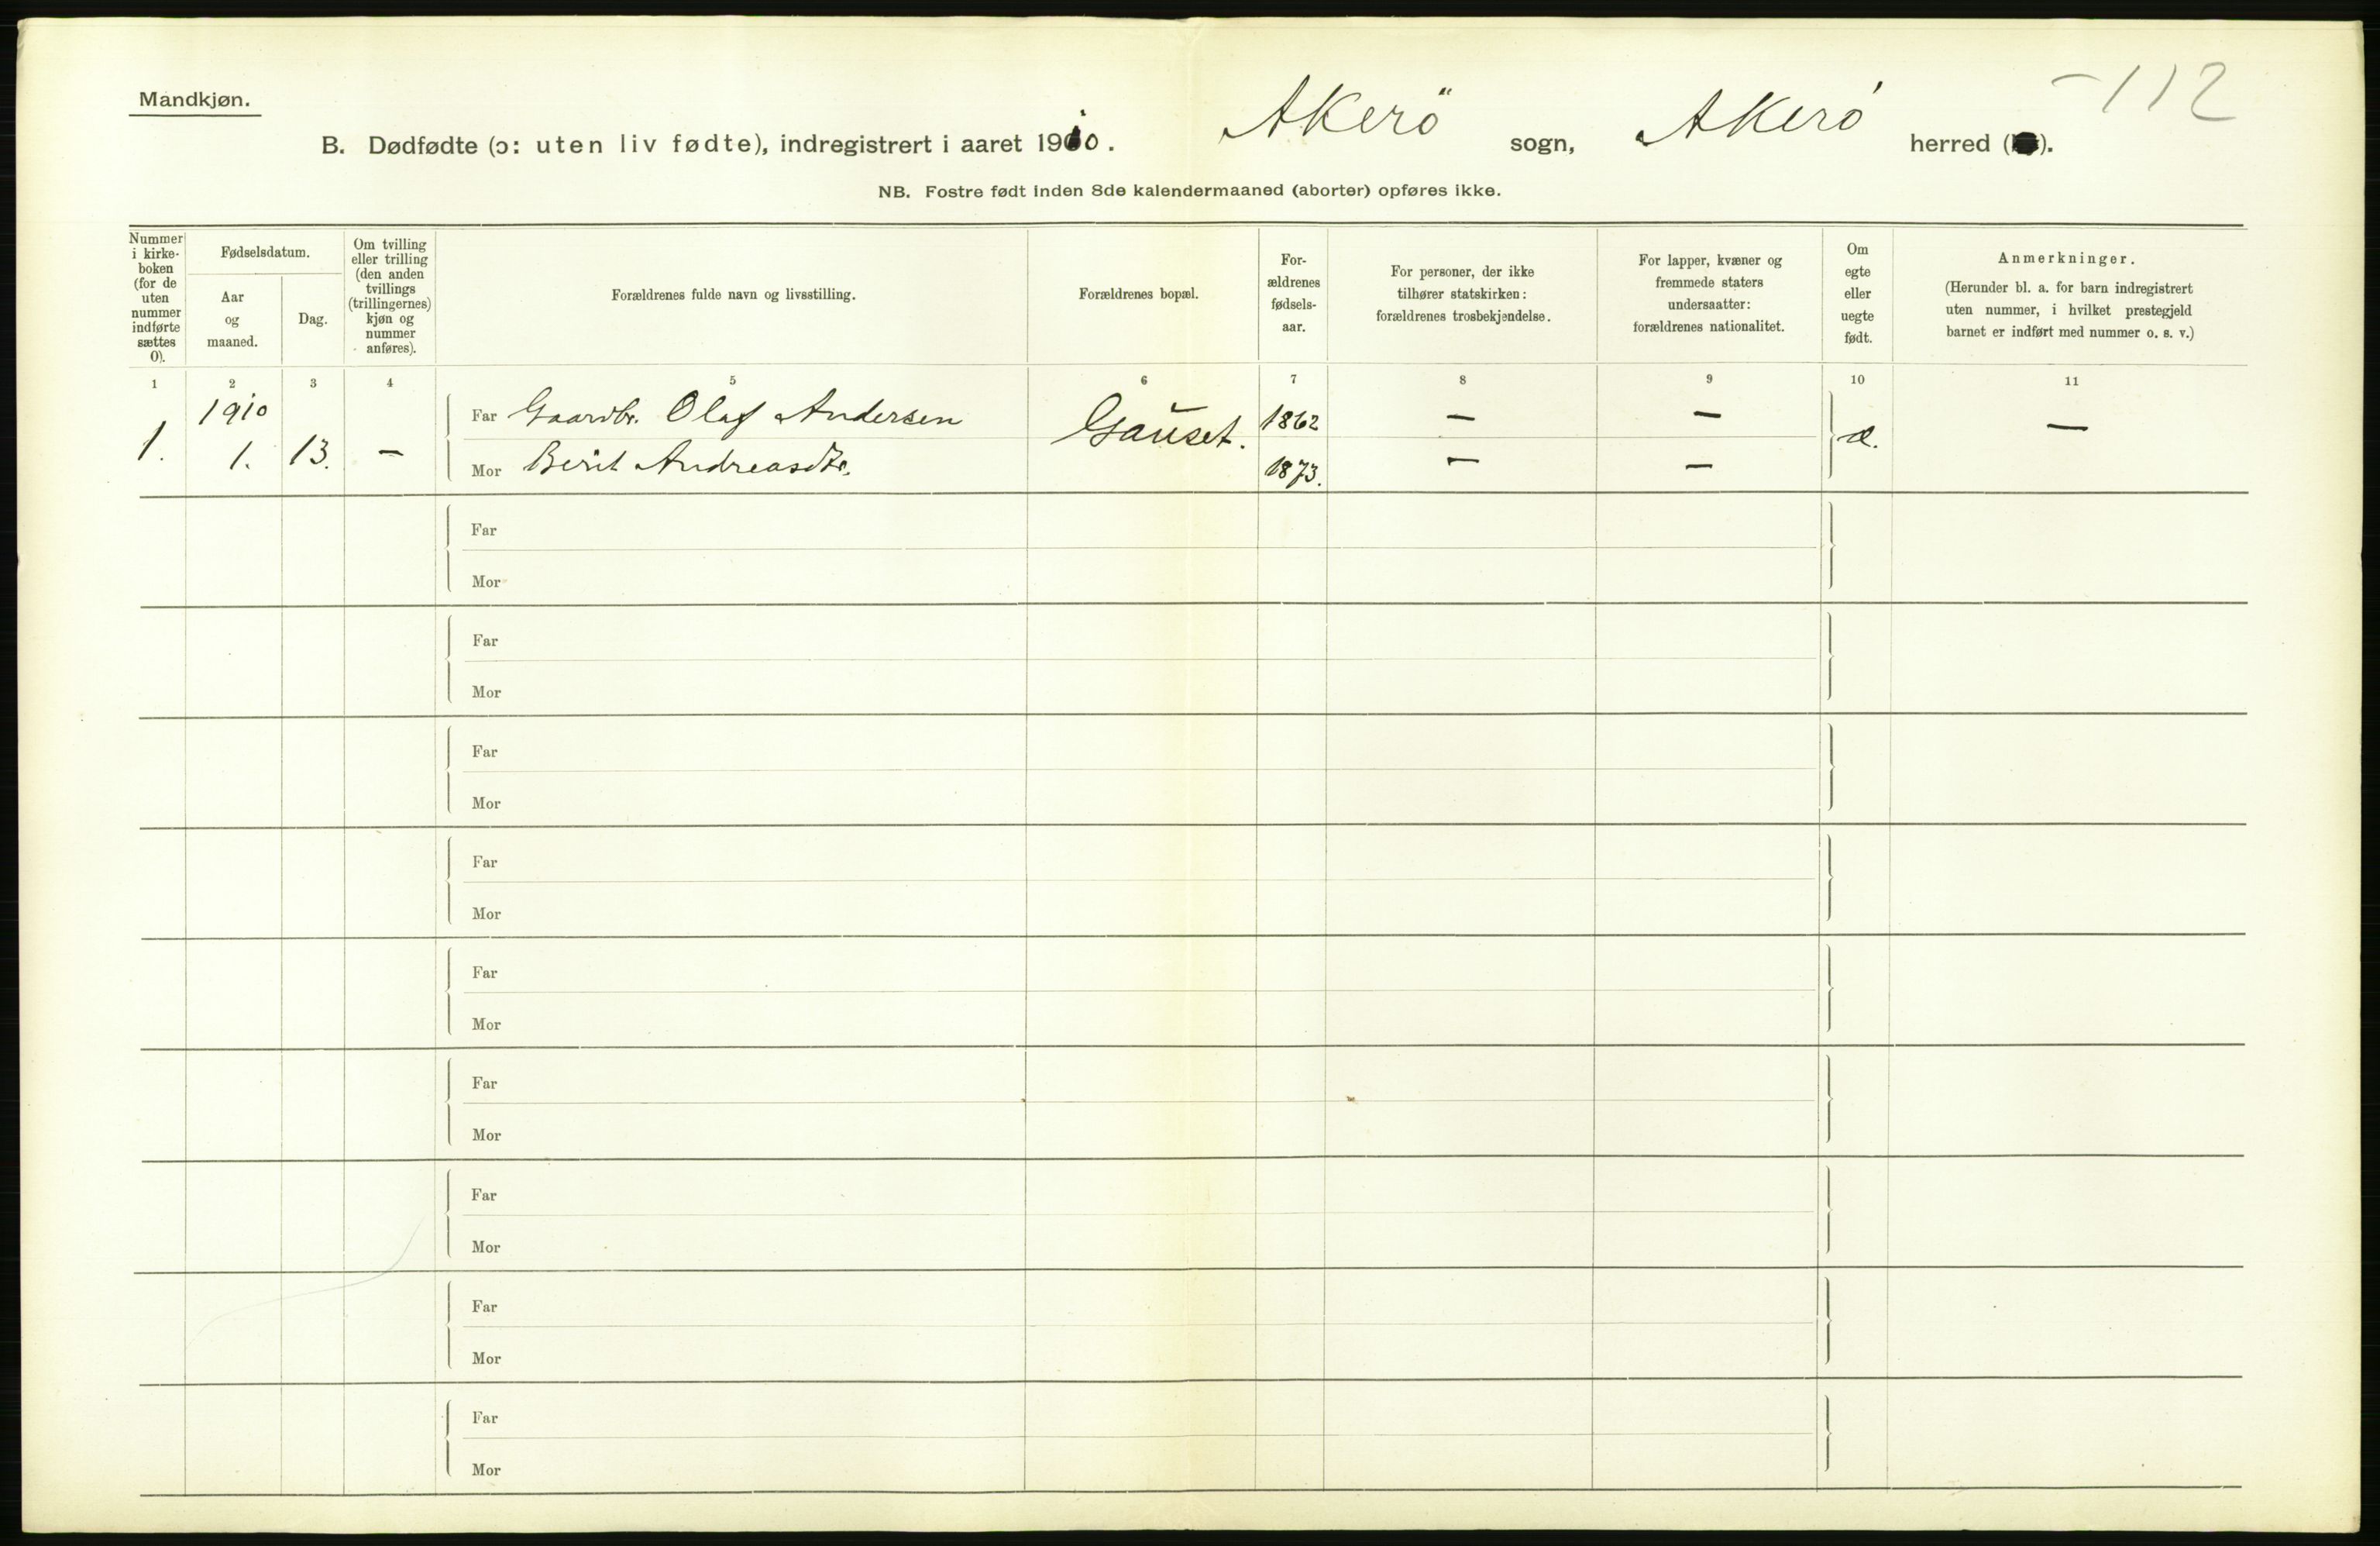 Mandkjøn.
-112
B. Dødfødte (ɔ: uten liv fødte), indregistrert i aaret 1910. Akerö sogn, Akerö herred ( ).
NB. Fostre født inden 8de kalendermaaned (aborter) opføres ikke.
Nummer i kirke-
boken
(for de
uten
nummer
indførte
sættes
0).
Fødselsdatum.
Aar
og
maaned.
Dag.
Om tvilling
eller trilling
(den anden
tvillings
(trillingernes)
kjøn og
nummer
anføres).
Forældrenes fulde navn og livsstilling.
Forældrenes bopæl.
For-
ældrenes
fødsels-
aar.
For personer, der ikke
tilhører statskirken:
forældrenes trosbekjendelse.
For lapper, kvæner og
fremmede staters
undersaatter:
forældrenes nationalitet.
Om
egte
eller
uegte
født.
Anmerkninger.
(Herunder bl. a. for barn indregistrert
uten nummer, i hvilket prestegjeld
barnet er indført med nummer o. s. v.)
1 2 3 4 5 6 7 8 9 10 11
1910
1. 1. 13. —
Far Gaardbr. Olaf Andersen Gauset. 1862 — — æ. —
Mor Berit Andreasdtr. 1873. — —
Far
Mor
Far
Mor
Far
Mor
Far
Mor
Far
Mor
Far
Mor
Far
Mor
Far
Mor
Far
Mor